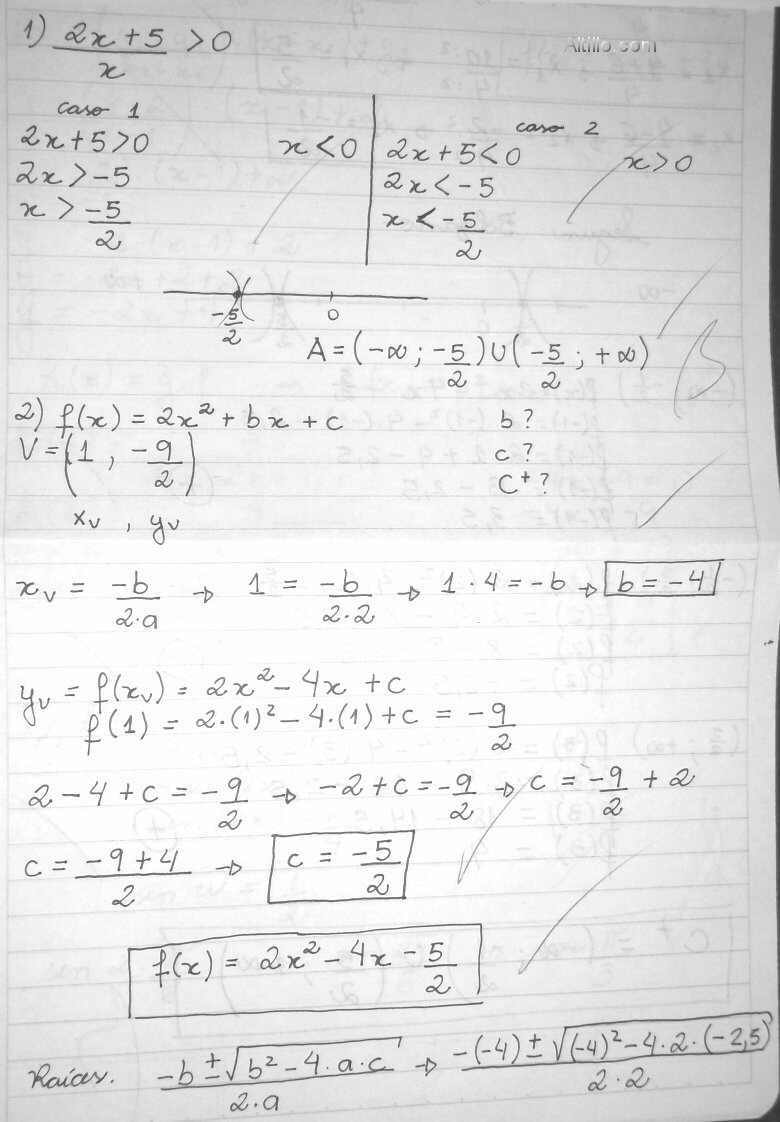 1) (2x+5)/x > 0
Altillo.com
caso 1
2x+5>0 x<0
2x>-5
x > -5/2
caso 2
2x+5<0 x>0
2x<-5
x < -5/2
-5/2 0
A = (-∞ ; -5/2) U (-5/2 ; +∞)
2) f(x) = 2x² + bx + c b?
V = (1 , -9/2) c?
C⁺?
xv , yv
xv = -b/(2·a) → 1 = -b/(2·2) → 1·4 = -b → b = -4
yv = f(xv) = 2x² - 4x + c
f(1) = 2·(1)² - 4·(1) + c = -9/2
2 - 4 + c = -9/2 → -2 + c = -9/2 → c = -9/2 + 2
c = (-9+4)/2 → c = -5/2
f(x) = 2x² - 4x - 5/2
Raíces. (-b ± √(b² - 4·a·c))/(2·a) → (-(-4) ± √((-4)² - 4·2·(-2,5)))/(2·2)